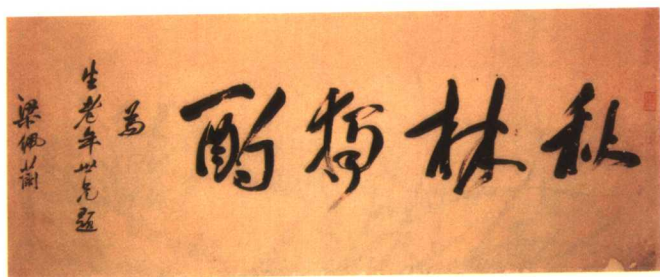 秋林獨酌
為
生老年世兄題
梁佩蘭